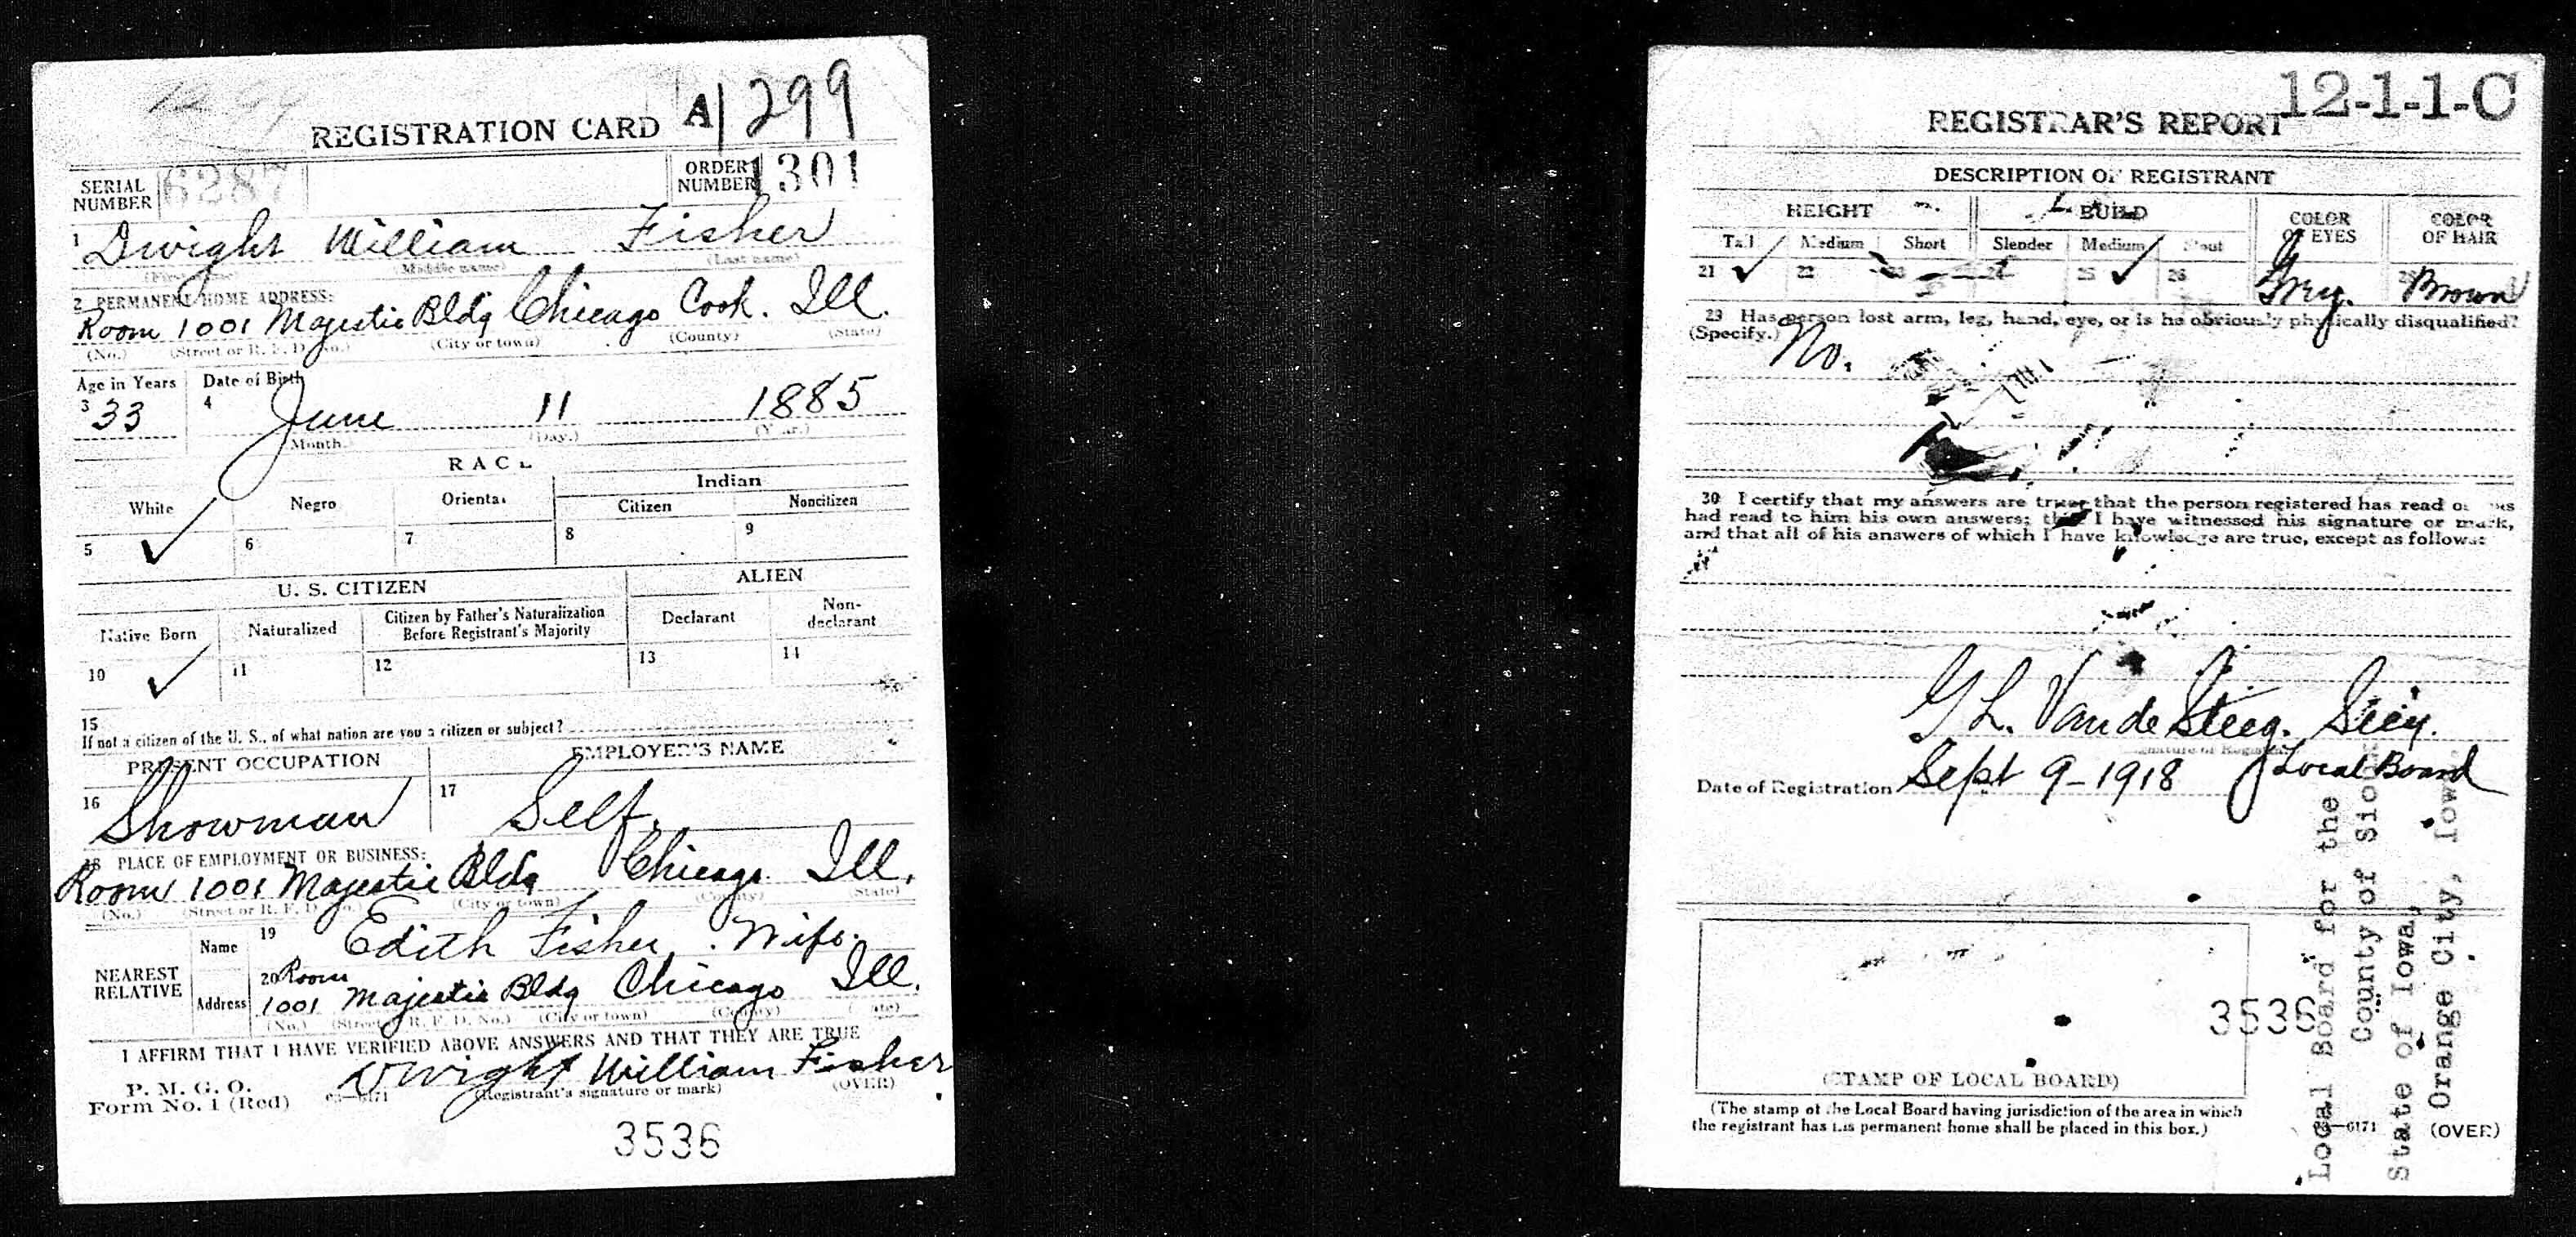 REGISTRATION CARD A/299
SERIAL NUMBER 6287
ORDER NUMBER 1301
1 Dwight William Fisher
(First name) (Middle name) (Last name)
2 PERMANENT HOME ADDRESS:
Room 1001 Majestic Bldg Chicago Cook. Ill.
(No.) (Street or R. F. D. No.) (City or town) (County) (State)
Age in Years Date of Birth
3 33 4 June 11 1885
(Month.) (Day.) (Year.)
RACE
White Negro Oriental Indian
Citizen Noncitizen
5 ✓ 6 7 8 9
U. S. CITIZEN ALIEN
Native Born Naturalized Citizen by Father's Naturalization Before Registrant's Majority Declarant Non-declarant
10 ✓ 11 12 13 14
15
If not a citizen of the U. S., of what nation are you a citizen or subject?
PRESENT OCCUPATION EMPLOYER'S NAME
16 Showman 17 Self.
18 PLACE OF EMPLOYMENT OR BUSINESS:
Room 1001 Majestic Bldg Chicago Ill.
(No.) (Street or R. F. D. No.) (City or town) (County) (State)
NEAREST RELATIVE
Name 19 Edith Fisher. Wife.
Address 20 Room
1001 Majestic Bldg Chicago Ill.
(No.) (Street or R. F. D. No.) (City or town) (County) (State)
I AFFIRM THAT I HAVE VERIFIED ABOVE ANSWERS AND THAT THEY ARE TRUE
P. M. G. O.
Form No. 1 (Red) Dwight William Fisher
(Registrant's signature or mark) (OVER)
3536
12-1-1-C
REGISTRAR'S REPORT
DESCRIPTION OF REGISTRANT
HEIGHT BUILD COLOR OF EYES COLOR OF HAIR
Tall Medium Short Slender Medium Stout
21 ✓ 22 23 24 25 ✓ 26 Grey. Brown
29 Has person lost arm, leg, hand, eye, or is he obviously physically disqualified?
(Specify.) No.
30 I certify that my answers are true; that the person registered has read or has
had read to him his own answers; that I have witnessed his signature or mark,
and that all of his answers of which I have knowledge are true, except as follows:
G L. Van de Steeg. Secy.
(Signature of Registrar)
Local Board
Date of Registration Sept 9-1918
3536
(STAMP OF LOCAL BOARD)
(The stamp of the Local Board having jurisdiction of the area in which
the registrant has his permanent home shall be placed in this box.)
6171 (OVER)
Local Board for the
County of Sioux
State of Iowa,
Orange City, Iowa.